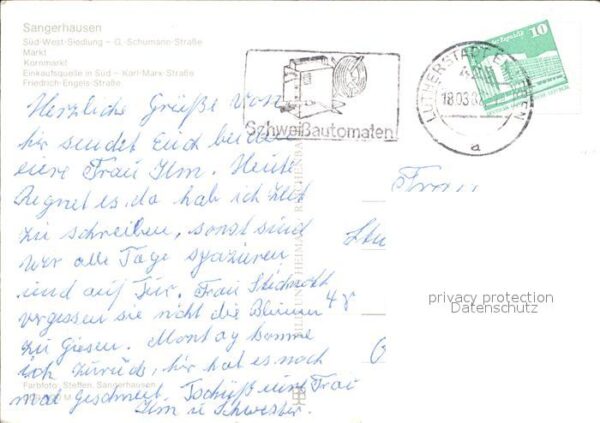 Sangerhausen
Süd-West-Siedlung – G.-Schumann-Straße
Markt
Kornmarkt
Einkaufsquelle in Süd – Karl-Marx-Straße
Friedrich-Engels-Straße
Herzliche Grüße von
hir sendet Euch beiden
eure Frau Ilm. Heute
Regnet es, da hab ich Zeit
zu schreiben, sonst sind
wir alle Tage spazieren
und auf Tur. Frau
vergessen sie nicht die Blumen
zu Giesen. Montag komme
ich zurück, hir hat es noch
mal geschneit. Tschüß eure Frau
Ilm u Schwester.
Farbfoto: Steffen, Sangerhausen
Schweißautomaten
LUTHERSTADT EISLEBEN
18.03
a
10
BILD UND HEIMAT REICHENBACH
Frau
privacy protection
Datenschutz